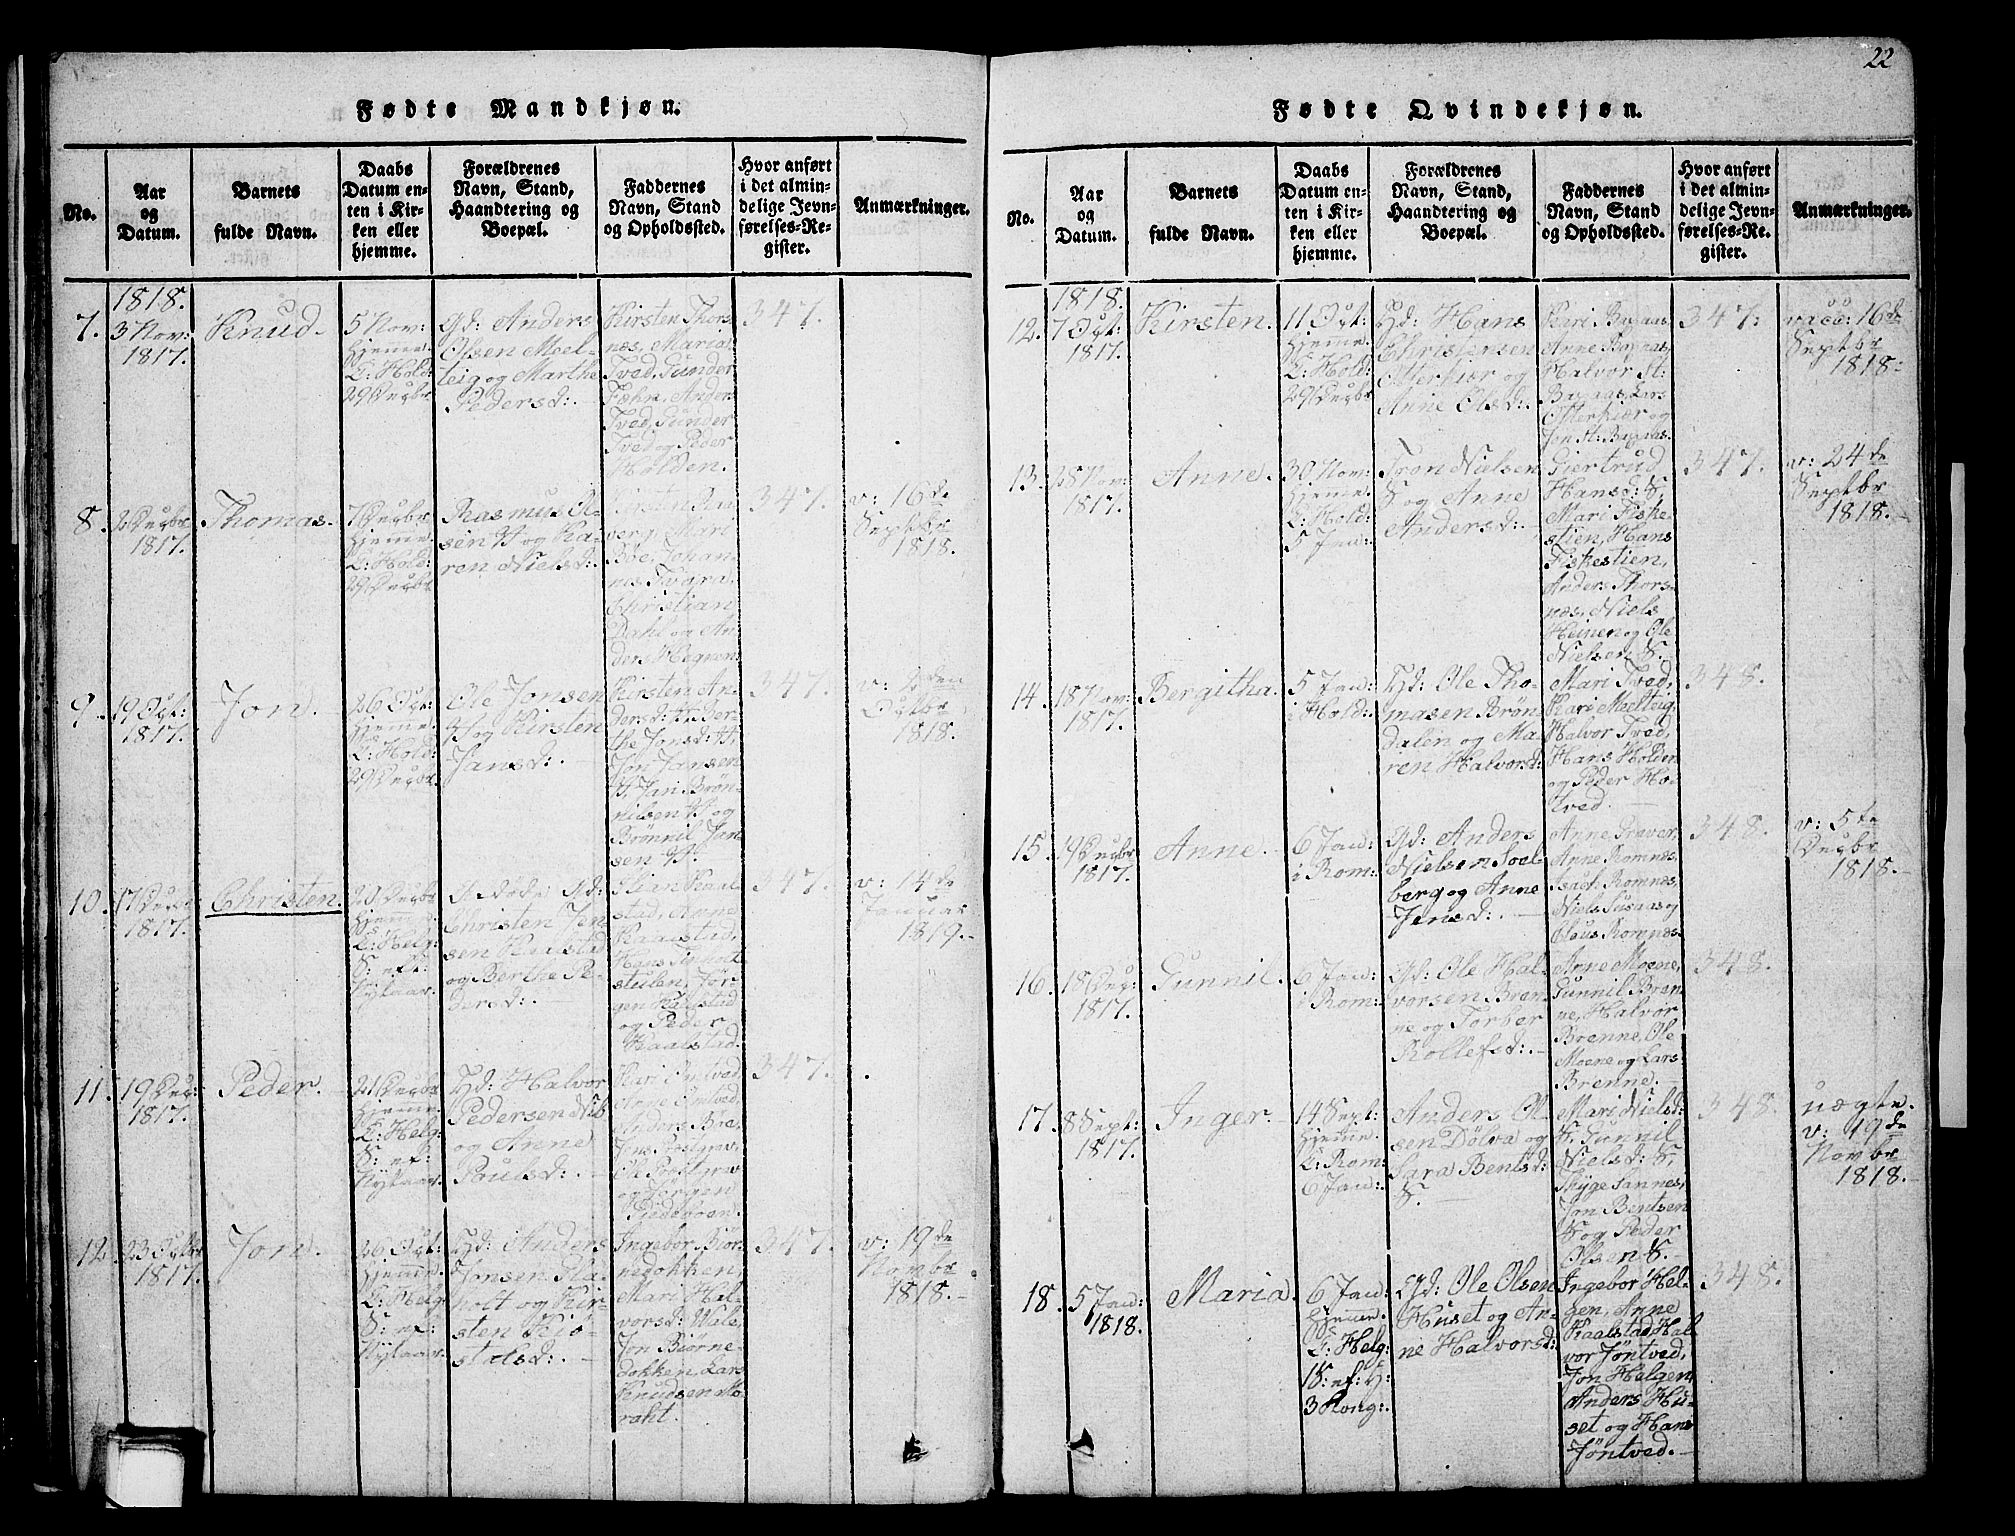 22
Fødte Mandkjøn.
No.
Aar
og
Datum.
Barnets
fulde Navn.
Daabs
Datum en-
ten i Kir-
ken eller
hjemme.
Forældrenes
Navn, Stand,
Haandtering og
Boepæl.
Faddernes
Navn, Stand
og Opholdssted.
Hvor anført
i det almin-
delige Jevn-
førelses-Re-
gister.
Anmærkninger.
1818.
7.
3 Nov:
1817.
Knud.
5 Nov:
hjemme.
I: Hold:
29 Decbr
Gd: Anders
Olsen Moel-
teig og Marthe
Pedersd:
Kirsten Thors-
næs, Maria
Tved, Gunder
Føhn, Anders
Tved, Gunder
Tved og Peder
Holden.
347.
8.
2 Decbr
1817.
Thomas.
7 Decbr
hjemme.
I: Hold:
29 Decbr
Rasmus
og Ka-
ren Nielsd:
Mari
Bøe, Johan-
nes Tvara,
Christian
Dahl og An-
ders
347.
v: 16de
Septbr
1818.
9.
19 Oct:
1817.
Jon.
26 Oct:
hjemme.
I: Hold:
29 Decbr.
Ole Jonsen
og Kirsten
Jansd:
Kirsten An-
dersd: Ber-
the Jonsd:
Jon Jansen
Jan Brøn-
nilsen og
Brønnil Jan-
sen
347.
v:
Octbr
1818.
10.
17 Decbr
1817.
Christen.
20 Decbr
hjemme.
I: Helg:
S: eft:
Nytaar.
Gd:
Christen Jen-
sen Kaalstad
og Berthe Pe-
dersd:
Kaal-
stad, Anne
Kaalstad,
Hans
stulen, Jør-
gen Kaalstad
og Peder
Kaalstad.
347.
v: 14de
Januar
1819.
11.
19 Dec:
1817.
Peder.
21 Decbr
hjemme.
I: Helg:
S: ef:
Nytaar.
Hd: Halvor
Pedersen
og Anne
Poulsd:
Kari
Anders Bøe,
og Jørgen
347.
12.
23 Octbr
1817.
Jon.
26 Oct:
hjemme.
I: Helg:
S: ef:
Nytaar.
Hd: Anders
Jonsen Fla-
holt og Kir-
sten Kiø-
stolsd:
Ingebor Biør-
nedokken,
Mari Hal-
vorsd: Wale,
Jon Biørne-
dokken, Lars
Knudsen Mo-
raht.
347.
v: 19de
Novbr
1818.
Fødte Qvindekjøn.
No.
Aar
og
Datum.
Barnets
fulde Navn.
Daabs
Datum en-
ten i Kir-
ken eller
hjemme.
Forældrenes
Navn, Stand,
Haandtering og
Boepæl.
Faddernes
Navn, Stand
og Opholdssted.
Hvor anført
i det almin-
delige Jevn-
førelses-Re-
gister.
Anmærkninger.
1818.
12.
7 Oct:
1817.
Kirsten.
11 Oct:
hjemme.
I: Hold:
29 Decbr
Hd: Hans
Christensen
Otterkiær og
Anne Olsd:
Kari Bagaas,
Anne Bagaas,
Halvor St:
Bagaas, Lars
Otterkiær og
Jon St: Bagaas.
347.
vacc: 16de
Septbr
1818.
13.
28 Nov:
1817.
Anne.
30 Nov:
hjemme.
I: Hold:
5 Jan:
Tron Nielsen
S og Anne
Andersd:
Giertrud
Hansd: S,
Mari Fiske-
stien, Hans
Fiskestien,
Anders Thors-
næs, Niels
Heinen og Ole
Nielsen S.
347.
v: 24de
Septbr
1818.
14.
18 Nov:
1817.
Bergitha.
5 Jan:
i Hold:
Hd: Ole Tho-
masen Brøn-
dalen og Ma-
ren Halvorsd:
Mari Tved,
Kari Moelteig,
Halvor Tved,
Hans Holden
og Peder Ho-
tved.
348.
15.
19 Decbr
1817.
Anne.
6 Jan:
i Rom:
Gd: Anders
Nielsen Soel-
berg og Anne
Jensd:
Anne Graver,
Anne Romnes,
Isach Romnes,
Niels Susaas og
Claus Romnes.
348.
v: 5te
Decbr
1818.
16.
18 Dec:
1817.
Gunnil.
6 Jan:
i Rom:
Gd: Ole Hal-
vorsen Bren-
ne og Torber
Rollefsd:
Anne Moene,
Gunnil Bren-
ne, Halvor
Brenne, Ole
Moene og Lars
Brenne.
348.
17.
8 Sept:
1817.
Inger.
14 Sept:
hjemme.
I: Rom:
6 Jan:
Anders Ol-
sen Dølva og
Sara Bentsd:
S.
Mari Nielsd:
S, Gunnil
Nielsd: S,
Thyge Sannes,
Jon Bentsen
S og Peder
Olsen S.
348.
uægte.
v: 19de
Novbr
1818.
18.
5 Jan:
1818.
Maria.
6 Jan:
hjemme.
I: Helg:
1 S: ef: H:
3 Kong:
Gd: Ole Olsen
Huset og An-
ne Halvorsd:
Ingebor Hel-
gen, Anne
Kaalstad, Hal-
vor Jøntved,
Jon Helgen,
Anders Hu-
set og Hans
Jøntved.
348.